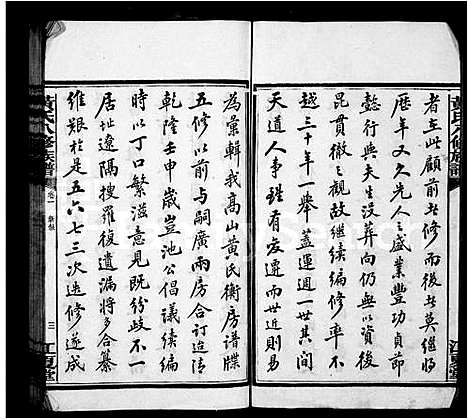 黃氏八修族譜
者在此顧前者修而後者莫繼將
歷年又久先人之盛業豐功貞節
懿行與夫生沒葬向仍無以資後
昆貫徹之觀故繼續編修率不
越三十年一舉蓋運週一世其間
天道人事理有變遷而世近則易
江夏堂
為彙輯我高山黃氏衡房譜牒
五修以前與嗣廣兩房合訂迨清
乾隆壬申歲豈池公倡議續修
時以丁口繁滋意見既紛歧不一
居址遼隔搜羅復遺漏將多合纂
維艱於是五六七三次迭修遂成
黃氏八修族譜
卷一
三
江夏堂